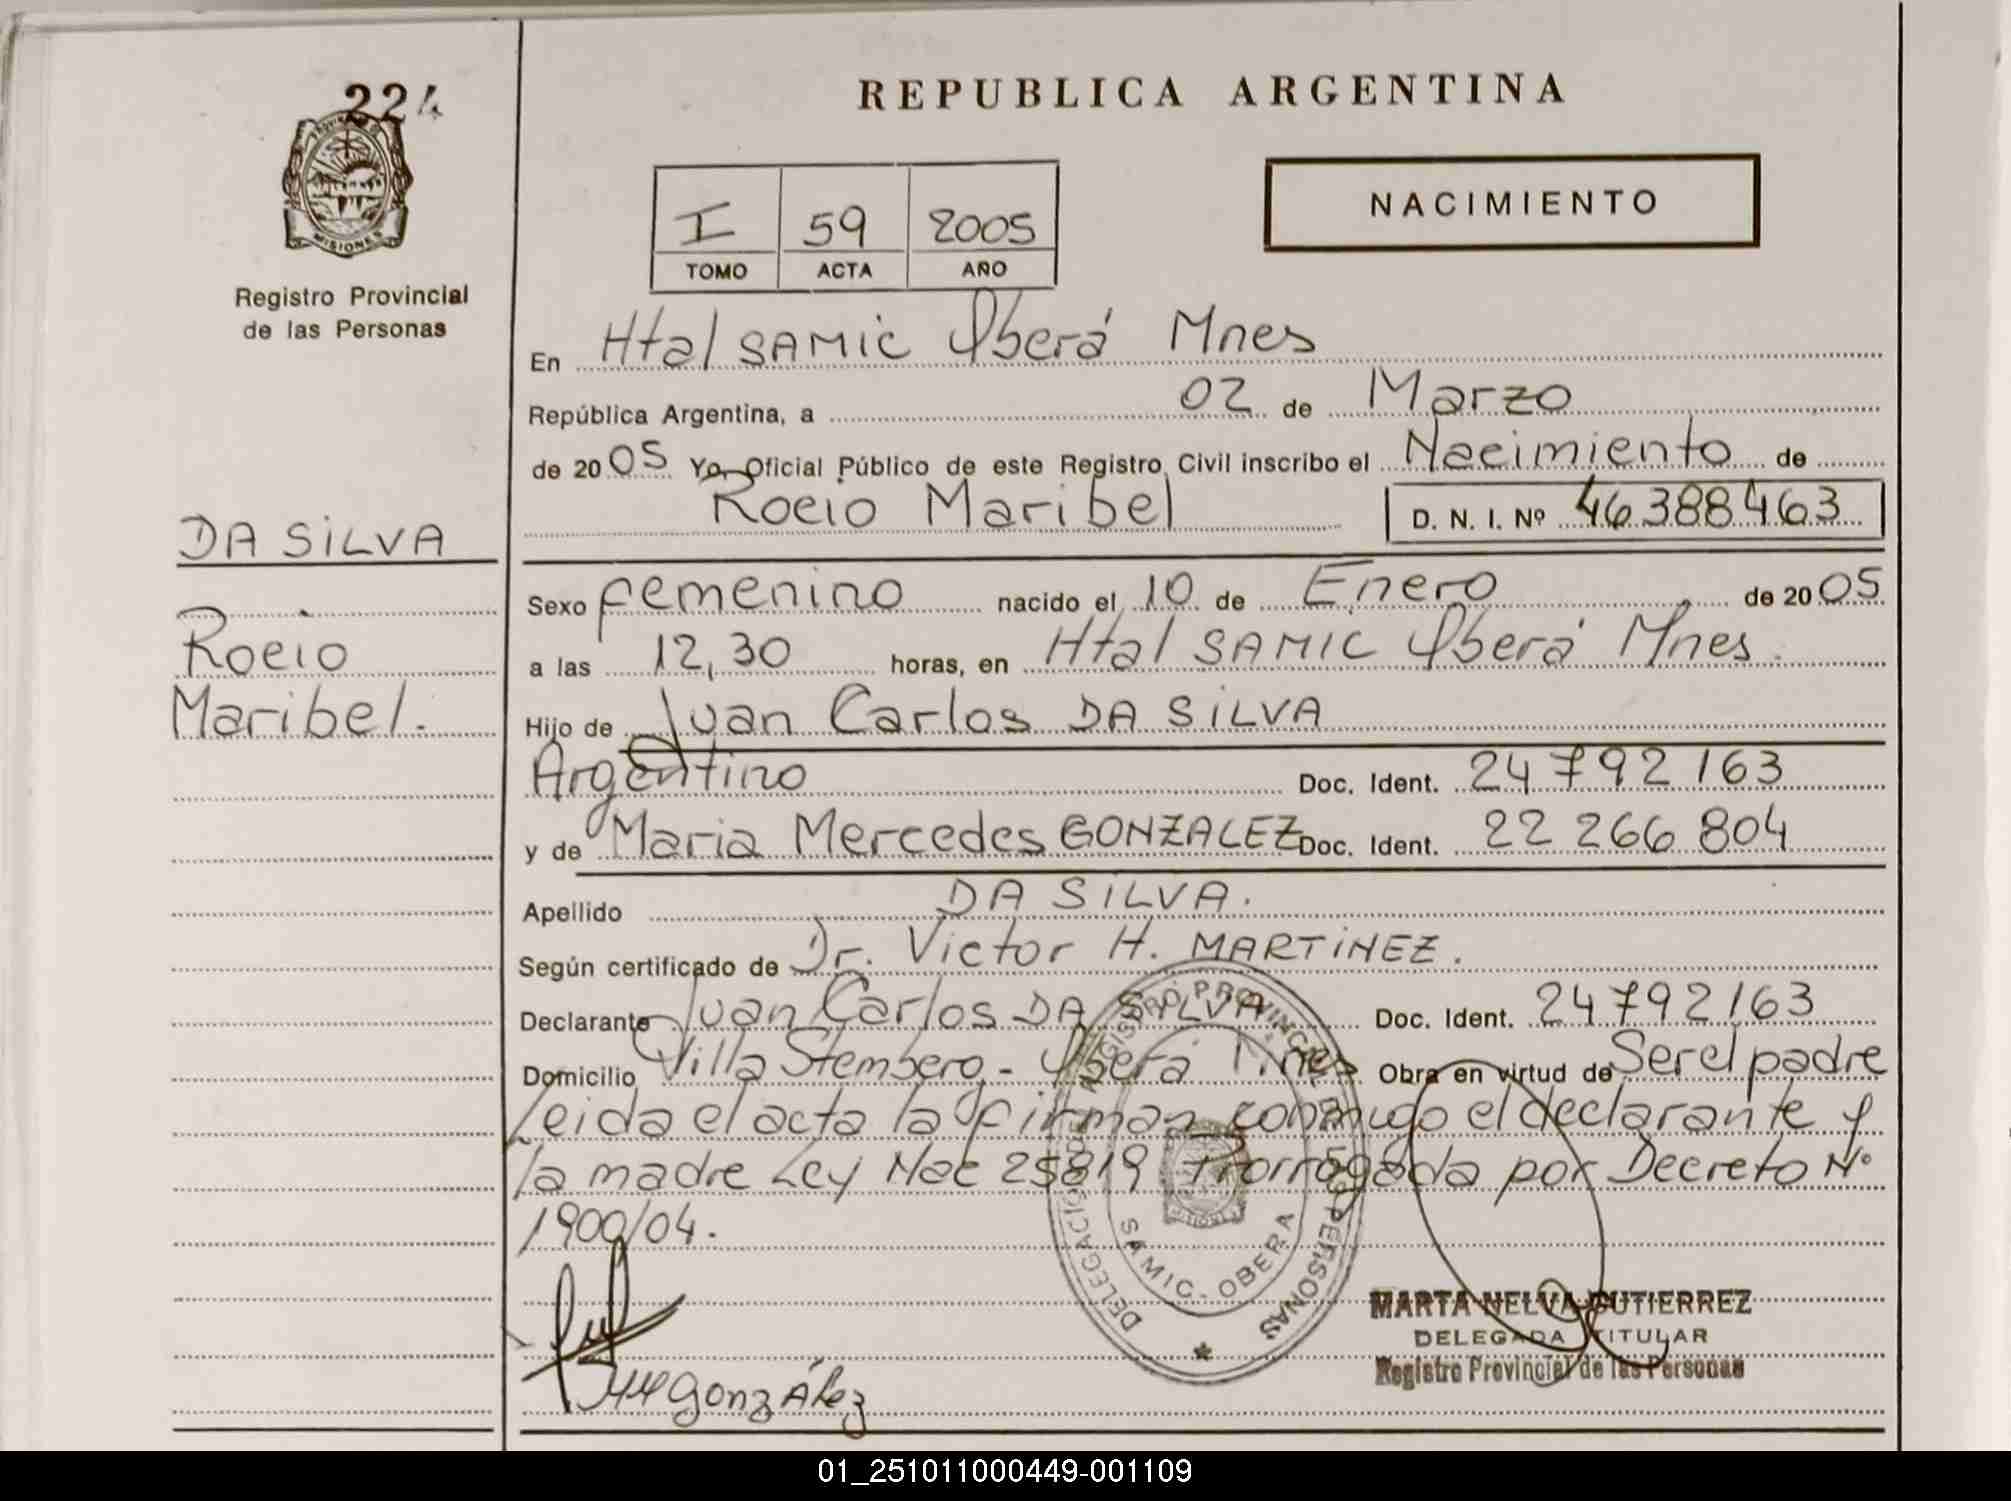 224
PROVINCIA D
MISIONES
Registro Provincial
de las Personas
REPUBLICA ARGENTINA
I 59 2005
TOMO ACTA AÑO
NACIMIENTO
En Htal SAMIC Oberá Mnes
República Argentina, a 02 de Marzo
de 2005 Yo Oficial Público de este Registro Civil inscribo el Nacimiento de
Rocio Maribel D. N. I. Nº 46388463
DA SILVA
Rocio
Maribel.
Sexo femenino nacido el 10 de Enero de 2005
a las 12,30 horas, en Htal SAMIC Oberá Mnes.
Hijo de Juan Carlos DA SILVA
Argentino Doc. Ident. 24792163
y de Maria Mercedes GONZALEZ Doc. Ident. 22 266 804
Apellido DA SILVA.
Según certificado de Dr. Victor H. MARTINEZ.
Declarante Juan Carlos DA SILVA Doc. Ident. 24792163
Domicilio Villa Stemberg - Oberá Mnes Obra en virtud de Ser el padre
Leida el acta la firman conmigo el declarante y
la madre Ley Nac 25819 Prorrogada por Decreto Nº
1900/04.
DELEGACION REGISTRO PROVINCIAL DE LAS PERSONAS
SAMIC - OBERA
MARTA NELVA GUTIERREZ
DELEGADA TITULAR
Registro Provincial de las Personas
González
01_251011000449-001109